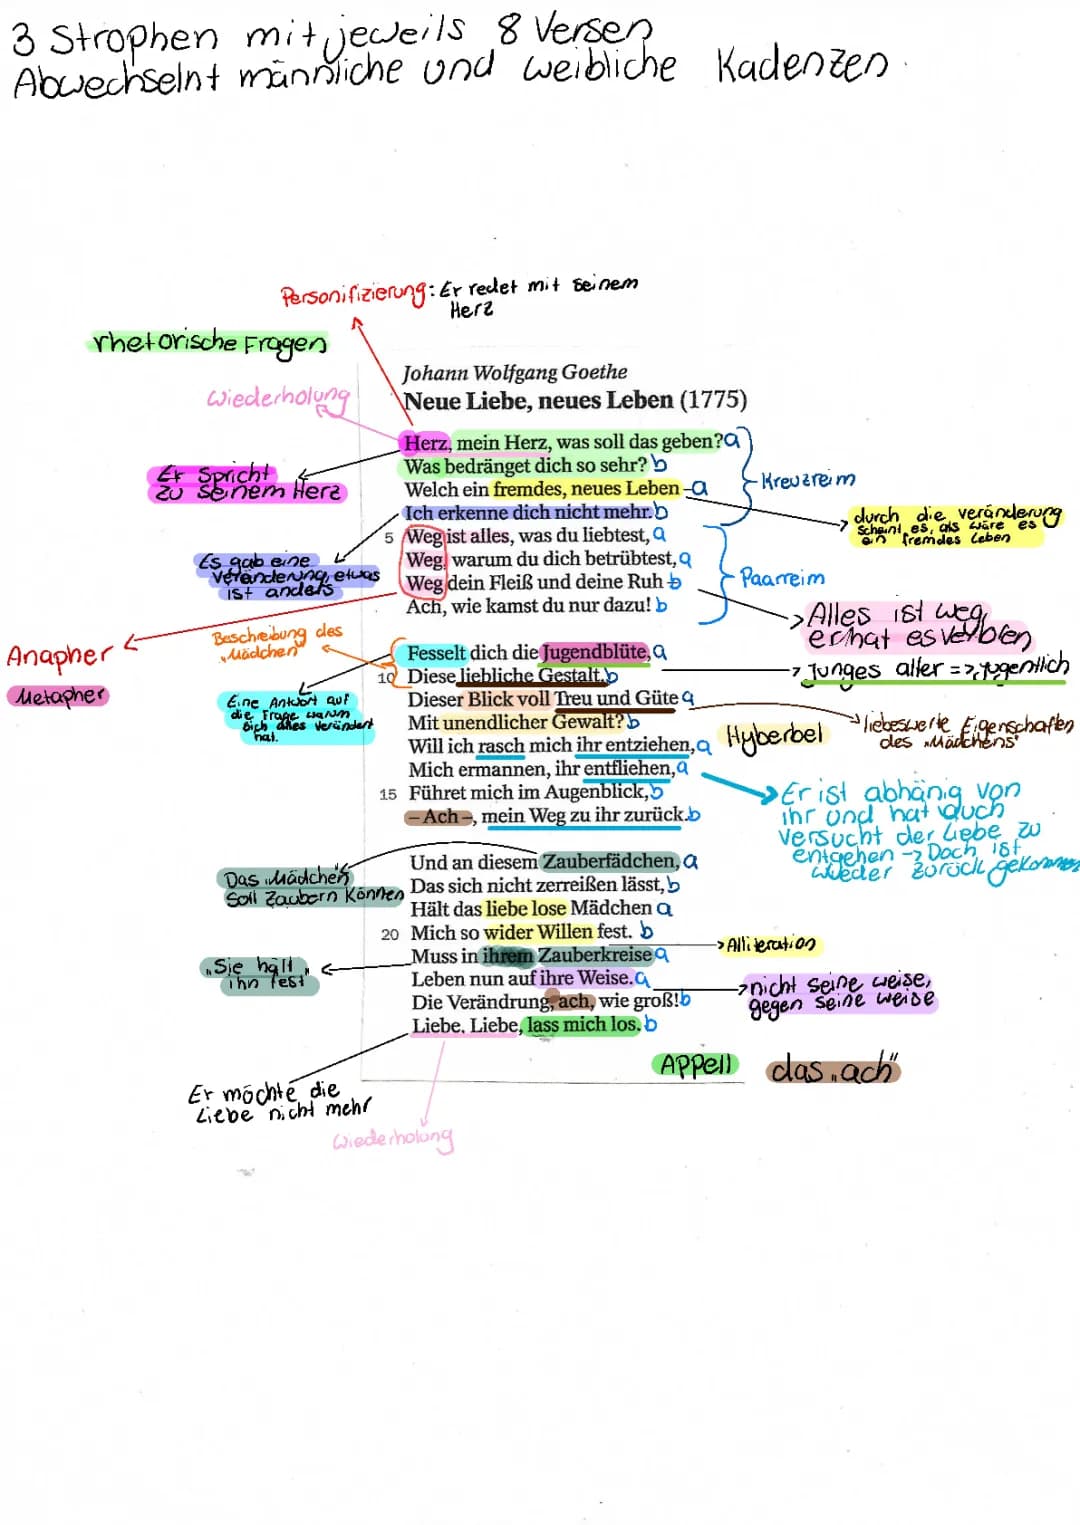 3 Strophen mit jeweils 8 Versen
Abwechselnt männliche und weibliche Kadenzen.
Personifizierung: Er redet mit seinem
Herz
rhetorische Fragen
Wiederholung
Johann Wolfgang Goethe
Neue Liebe, neues Leben (1775)
Herz, mein Herz, was soll das geben? a
Was bedränget dich so sehr? b
Welch ein fremdes, neues Leben – a
Ich erkenne dich nicht mehr. b
5 Weg ist alles, was du liebtest, a
Weg, warum du dich betrübtest, a
Weg dein Fleiß und deine Ruh – b
Ach, wie kamst du nur dazu! b
Kreuzreim
Paarreim
Er Spricht
zu seinem Herz
Es gab eine
Veränderung, etwas
ist anders
durch die veränderung
scheint es, als wäre es
ein fremdes Leben
Alles ist weg,
er hat es verloren
Anapher
Metapher
Bescheibung des
„Mädchen"
Eine Antwort auf
die Frage warum
sich alles verändert
hat.
Fesselt dich die Jugendblüte, a
10 Diese liebliche Gestalt, b
Dieser Blick voll Treu und Güte a
Mit unendlicher Gewalt? b
Will ich rasch mich ihr entziehen, a
Mich ermannen, ihr entfliehen, a
15 Führet mich im Augenblick, b
– Ach –, mein Weg zu ihr zurück. b
Junges alter => jugentlich
liebeswerte Eigenschaften
des „Mädchens"
Hyberbel
Er ist abhänig von
ihr und hat auch
versucht der Liebe zu
entgehen -> Doch ist
wieder zurück gekommen
Das „Mädchen"
soll zaubern können
Und an diesem Zauberfädchen, a
Das sich nicht zerreißen lässt, b
Hält das liebe lose Mädchen a
20 Mich so wider Willen fest. b
Muss in ihrem Zauberkreise a
Leben nun auf ihre Weise. a
Die Verändrung, ach, wie groß! b
Liebe, Liebe, lass mich los. b
Alliteration
„Sie hält"
ihn fest
nicht seine weise,
gegen seine weise
Appell
das „ach"
Er möchte die
Liebe nicht mehr
Wiederholung